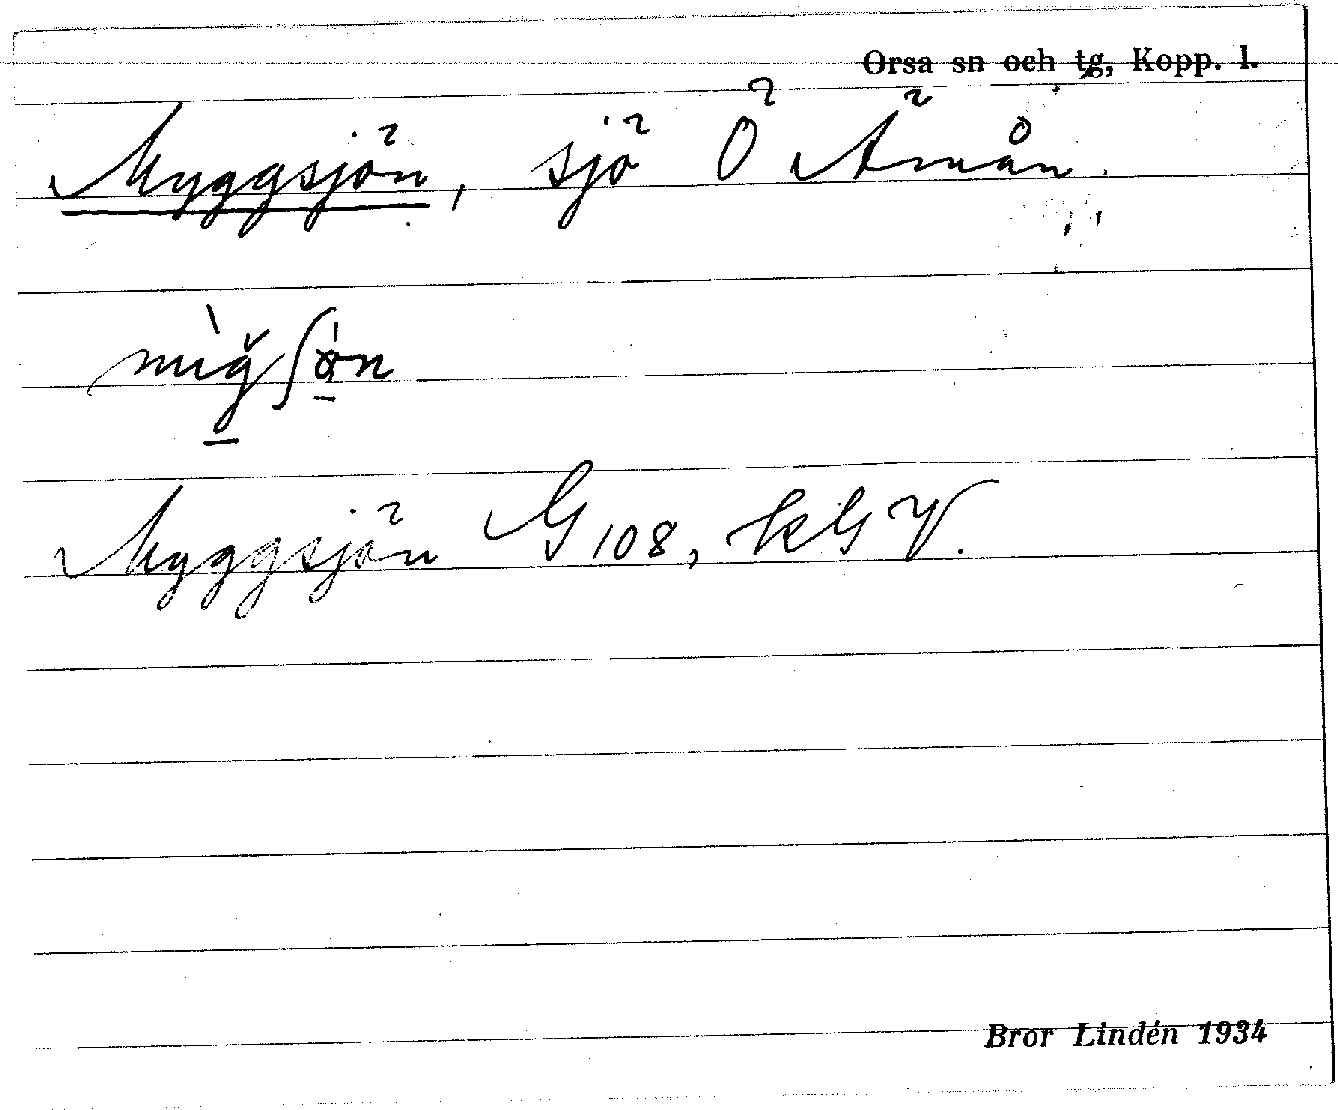 Orsa sn och tg, Kopp. l.
Myggsjön, sjö Ö Ämån.
Myggsjön G 108, kG V.
Bror Lindén 1934